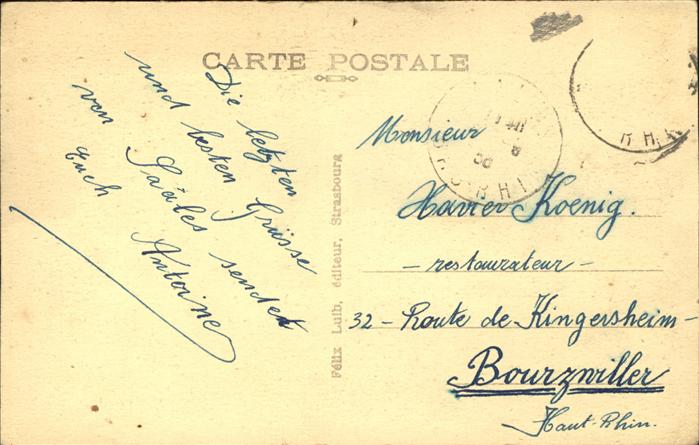 CARTE POSTALE
Die letzten
und besten Grüsse
von Saâles sendet
Euch Antoine
Félix Luib, éditeur, Strasbourg
Monsieur
Havier Koenig.
- restaurateur -
32 - Route de Kingersheim -
Bourzwiller
Haut-Rhin.
BAS-RHIN
RHIN